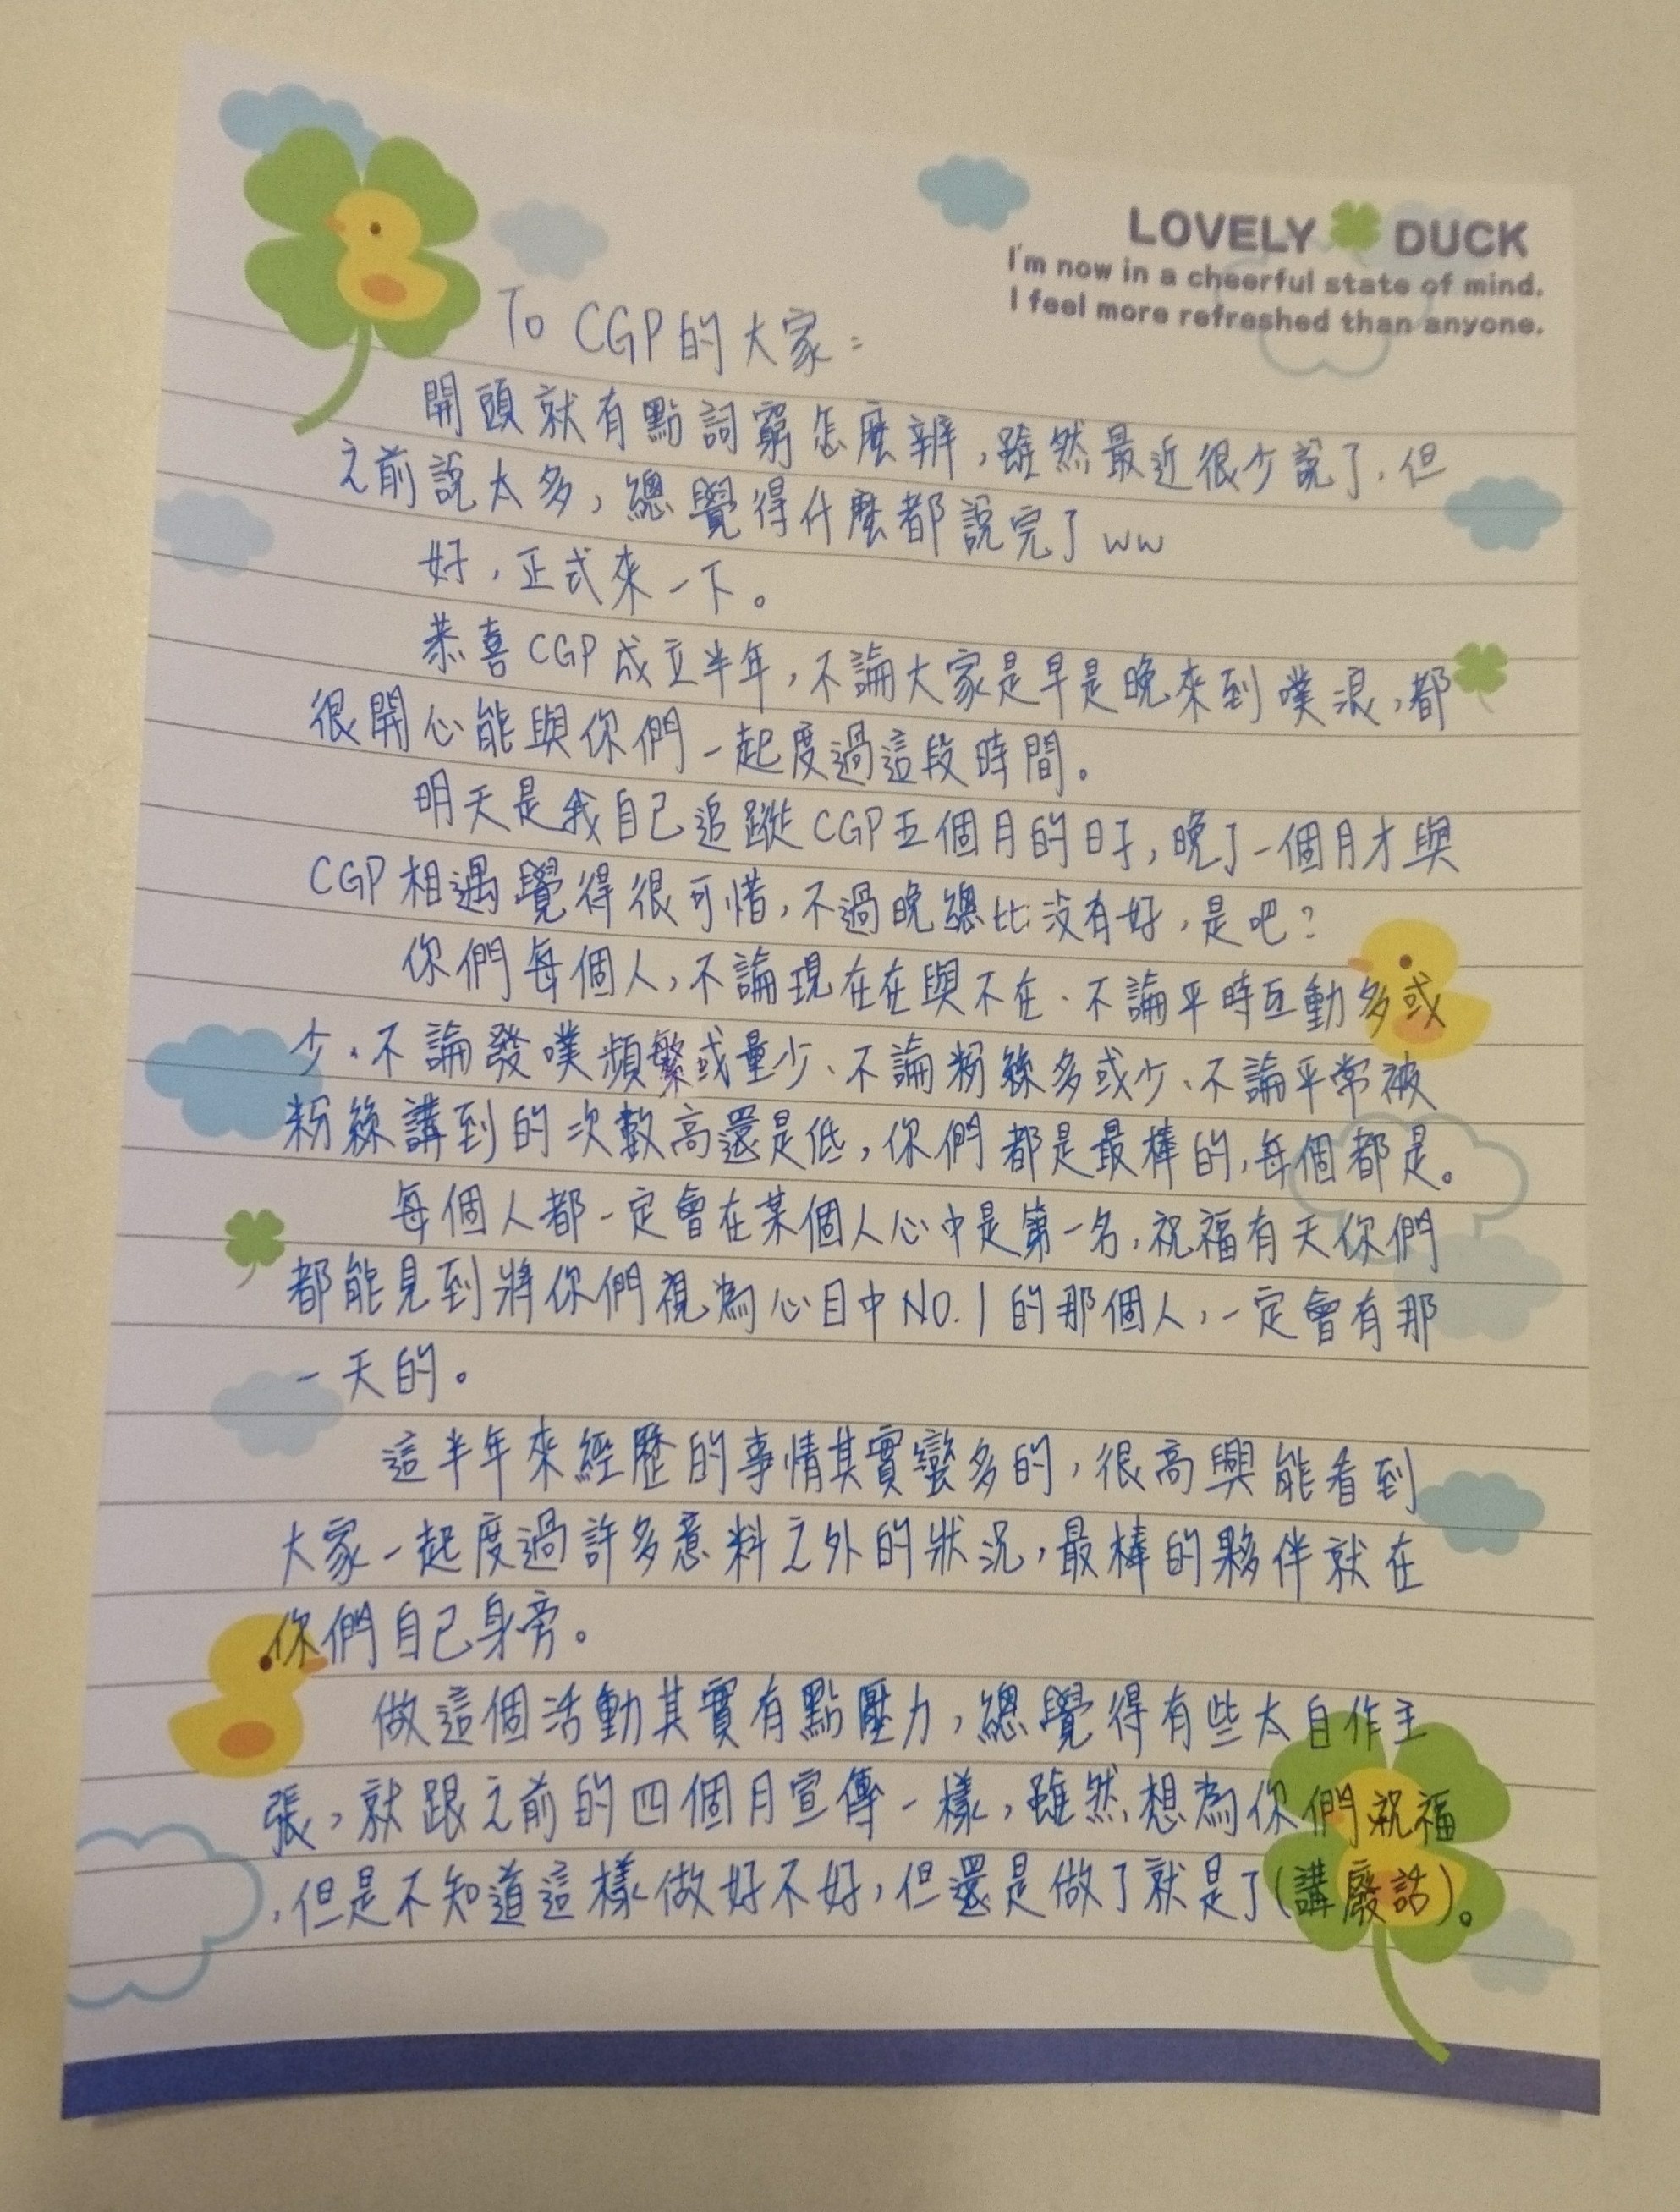 LOVELY DUCK
I'm now in a cheerful state of mind.
I feel more refreshed than anyone.
To CGP的大家：
開頭就有點詞窮怎麼辦，雖然最近很少說了，但
之前說太多，總覺得什麼都說完了ww
好，正式來一下。
恭喜CGP成立半年，不論大家是早是晚來到噗浪，都
很開心能與你們一起度過這段時間。
明天是我自己追蹤CGP五個月的日子，晚了一個月才與
CGP相遇覺得很可惜，不過晚總比沒有好，是吧？
你們每個人，不論現在在與不在、不論平時互動多或
少、不論發噗頻繁或量少、不論粉絲多或少、不論平常被
粉絲講到的次數高還是低，你們都是最棒的，每個都是。
每個人都一定會在某個人心中是第一名，祝福有天你們
都能見到將你們視為心目中NO.1的那個人，一定會有那
一天的。
這半年來經歷的事情其實蠻多的，很高興能看到
大家一起度過許多意料之外的狀況，最棒的夥伴就在
你們自己身旁。
做這個活動其實有點壓力，總覺得有些太自作主
張，就跟之前的四個月宣傳一樣，雖然想為你們祝福
，但是不知道這樣做好不好，但還是做了就是了(講廢話)。